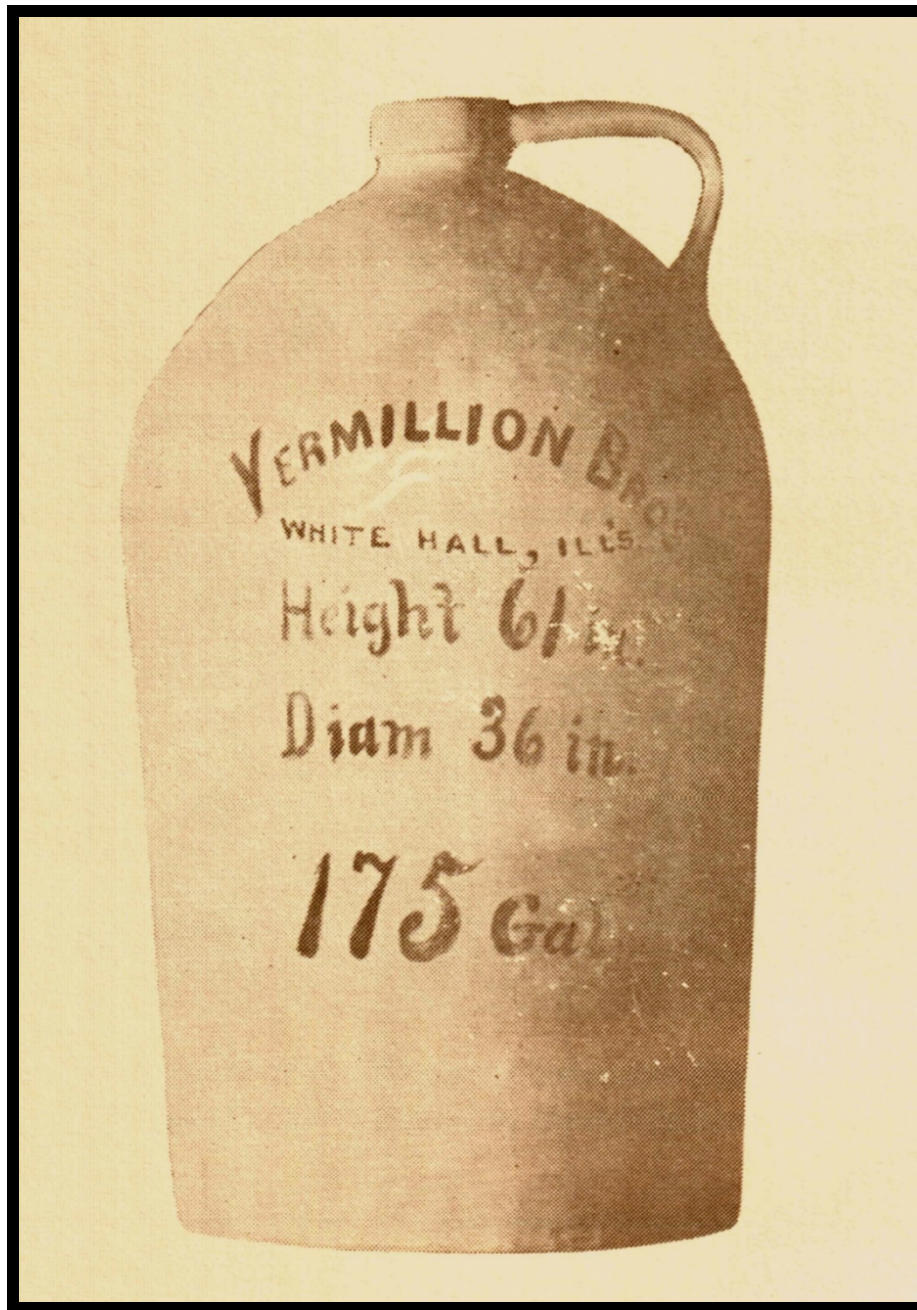 VERMILLION BROS
WHITE HALL, ILL'S.
Height 61 in.
Diam 36 in.
175 Gal.